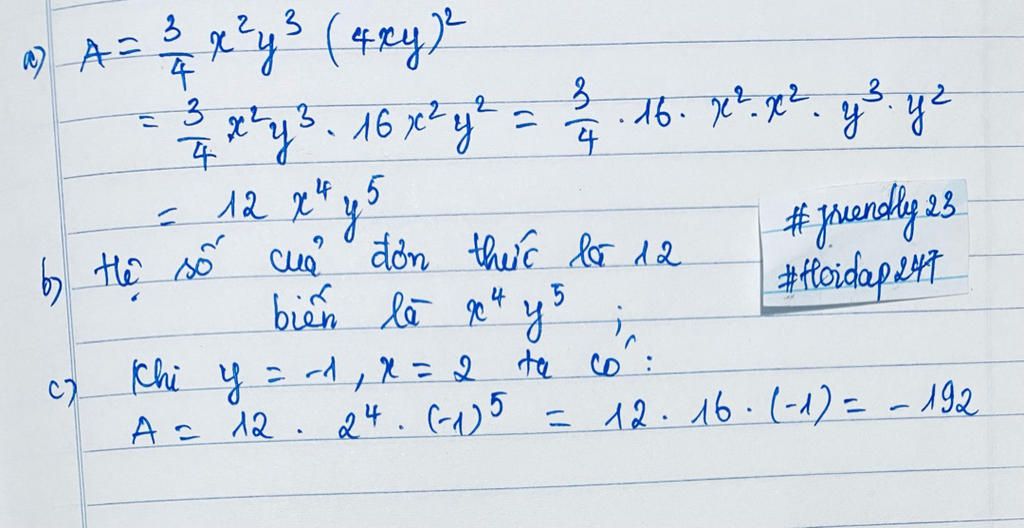 a) A = 3/4 x²y³ (4xy)²
= 3/4 x²y³ . 16x²y² = 3/4 . 16 . x² . x² . y³ . y²
= 12 x⁴ y⁵
b) Hệ số của đơn thức là 12
biến là x⁴ y⁵ ;
c) Khi y = -1 , x = 2 ta có :
A = 12 . 2⁴ . (-1)⁵ = 12 . 16 . (-1) = - 192
# friendly 23
#Hoidap247